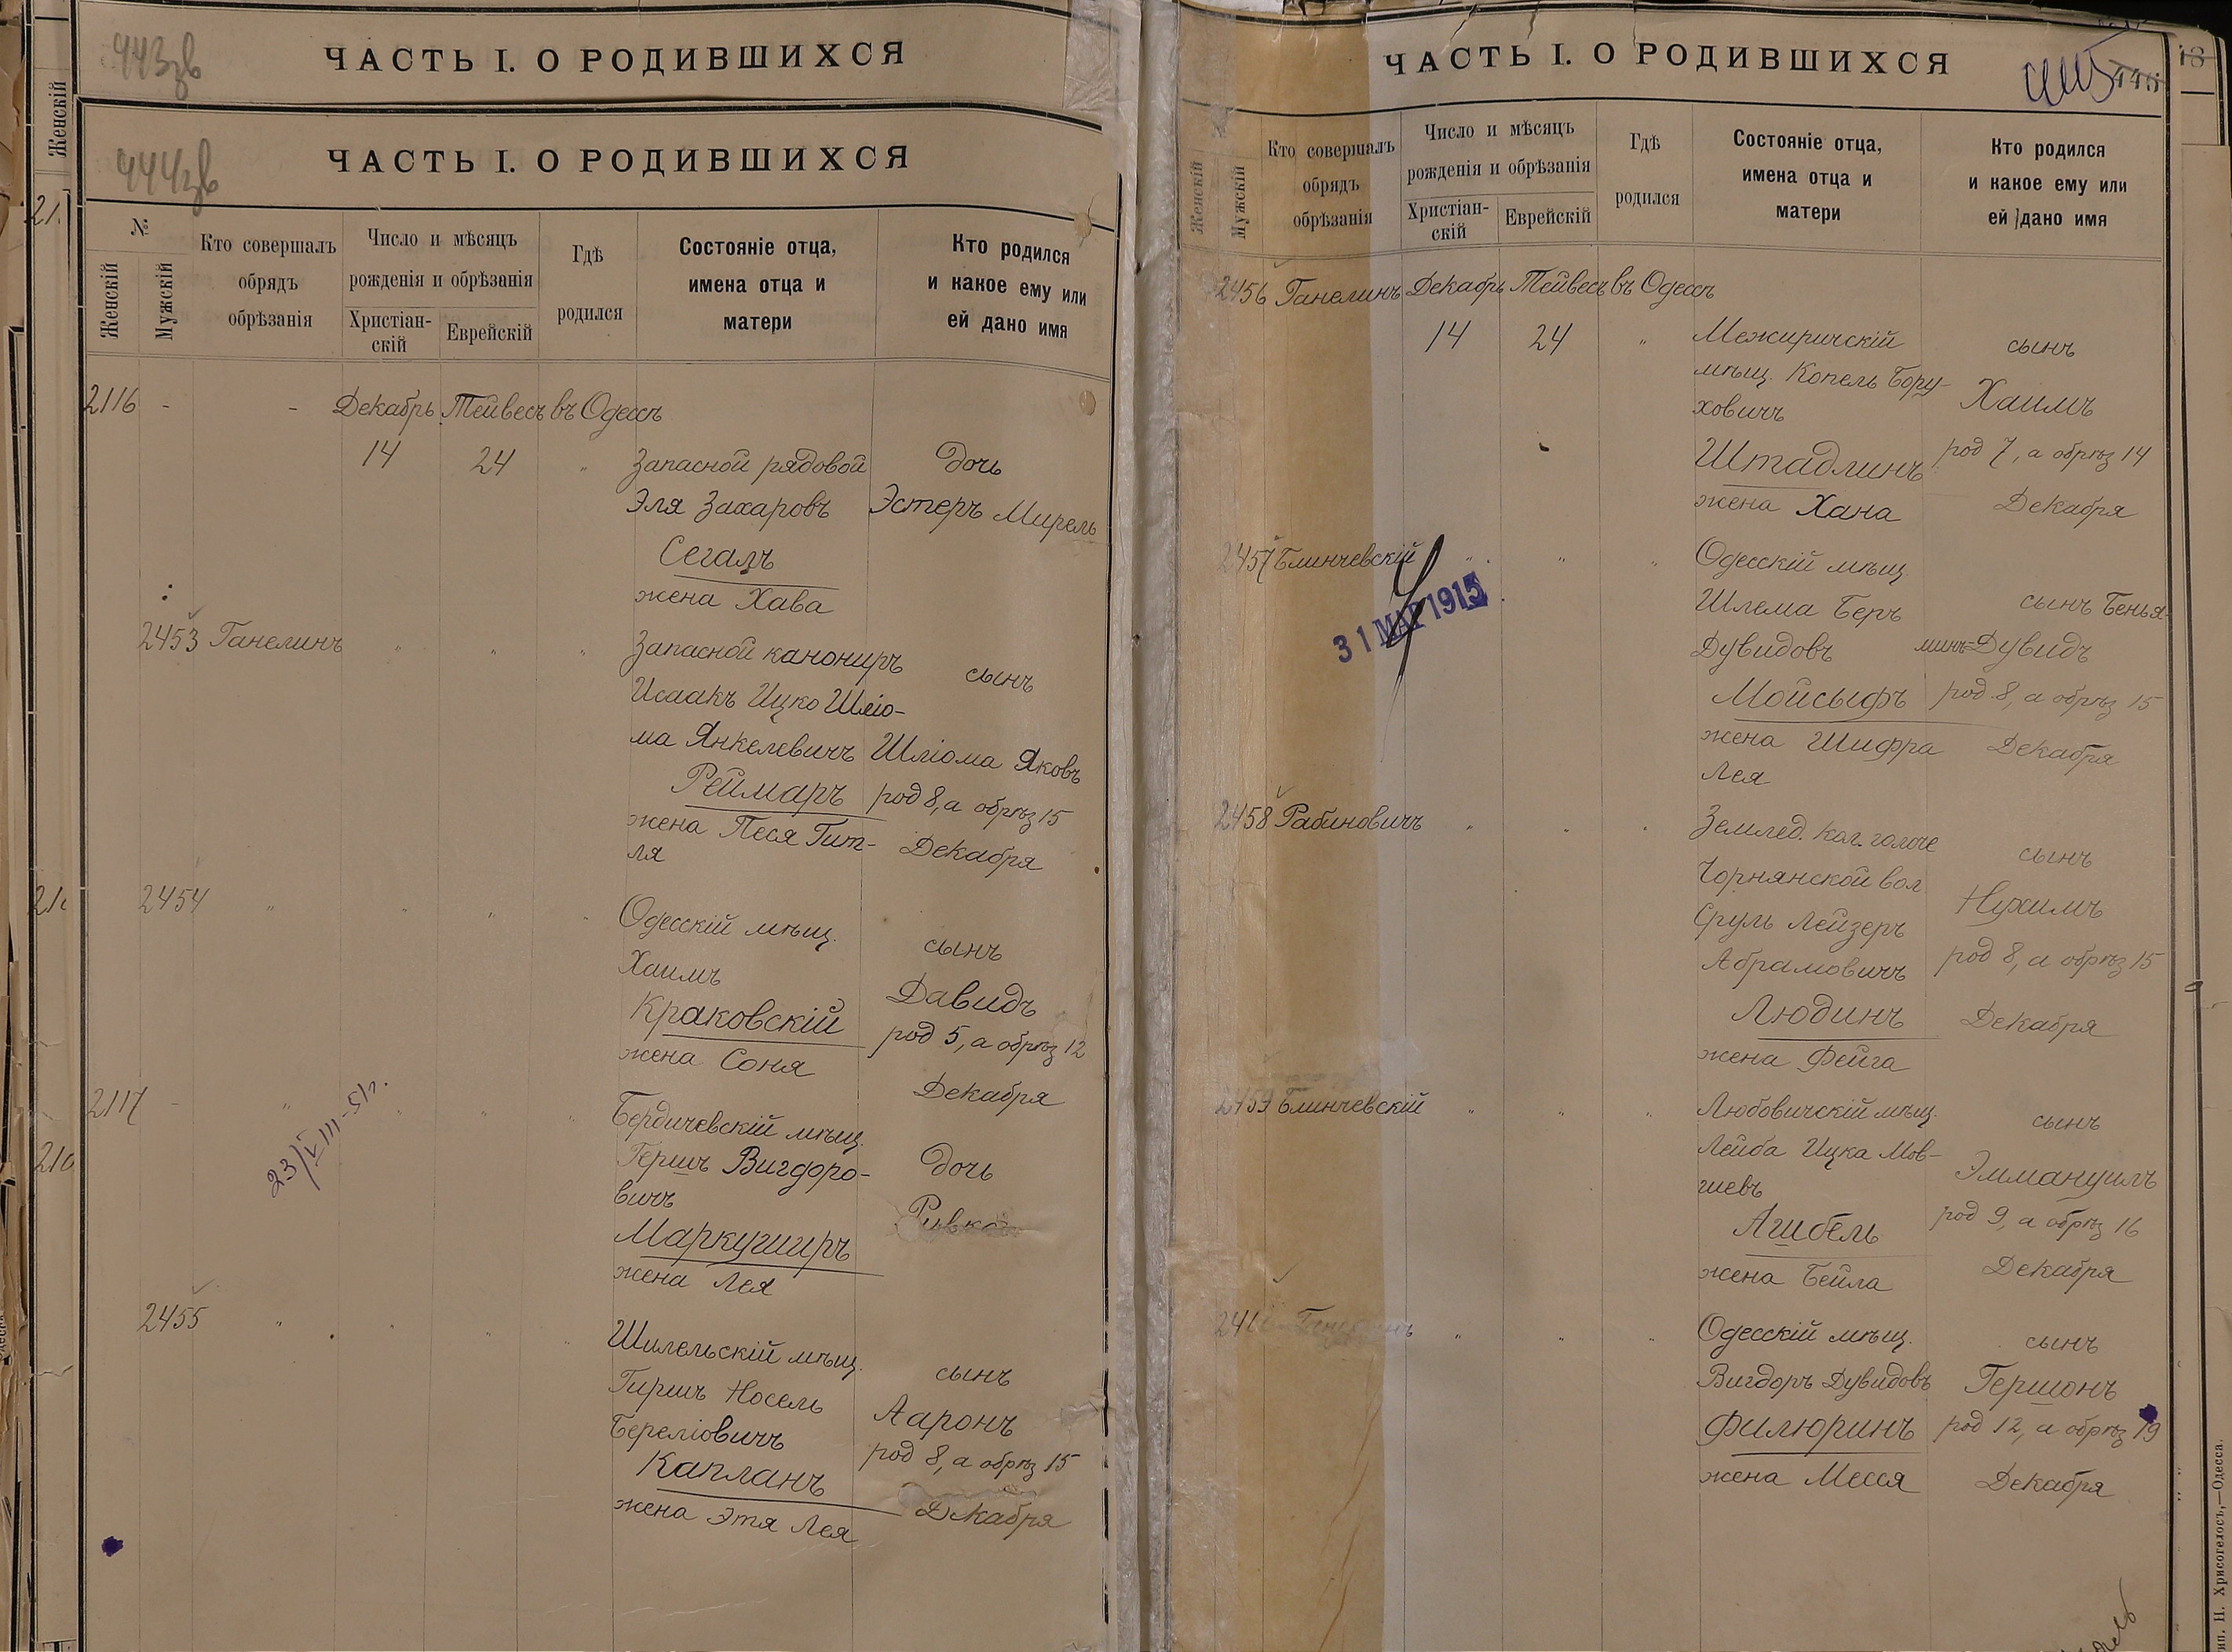 443зв
ЧАСТЬ I. О РОДИВШИХСЯ
Женскій
444зв
ЧАСТЬ I. О РОДИВШИХСЯ
№
Женскій
Мужскій
Кто совершалъ
обрядъ
обрѣзанія
Число и мѣсяцъ
рожденія и обрѣзанія
Христіан-
скій
Еврейскій
Гдѣ
родился
Состояніе отца,
имена отца и
матери
Кто родился
и какое ему или
ей дано имя
2116 - - Декабрь Тейвесъ въ Одессѣ
14 24 " Запасной рядовой Дочь
Эля Захаровъ Эстеръ Мирель
Сегалъ
жена Хава
2453 Ганелинъ " " " Запасной канониръ сынъ
Исаакъ Ицко Шліо-
ма Янкелевичъ Шліома Яковъ
Реймаръ род 8, а обрѣз 15
жена Песя Гит- Декабря
ля
2454 " " " " Одесскій мѣщ. сынъ
Хаимъ Давидъ
Краковскій род 5, а обрѣз 12
жена Соня Декабря
2117 - " " " " Бердичевскій мѣщ.
Гершъ Вигдоро- Дочь
вичъ Ривка
Маркуширъ
жена Лея
2455 " " " " Шилельскій мѣщ. сынъ
Гиршъ Носель Ааронъ
Береліовичъ род 8, а обрѣз 15
Капланъ Декабря
жена Этя Лея
ЧАСТЬ I. О РОДИВШИХСЯ
Женскій
Мужскій
Кто совершалъ
обрядъ
обрѣзанія
Число и мѣсяцъ
рожденія и обрѣзанія
Христіан-
скій
Еврейскій
Гдѣ
родился
Состояніе отца,
имена отца и
матери
Кто родился
и какое ему или
ей дано имя
2456 Ганелинъ Декабрь Тейвесъ въ Одессѣ
14 24 " Межиричскій сынъ
мѣщ. Копель Бору-
ховичъ Хаимъ
Штадлинъ род 7, а обрѣз 14
жена Хана Декабря
2457 Блинчевскій " " " Одесскій мѣщ.
31 МАР 1915
Шлема Беръ сынъ Бенья-
Дувидовъ минъ=Дувидъ
Мойсыфъ род. 8, а обрѣз 15
жена Шифра Декабря
Лея
2458 Рабиновичъ " " " Землед. кол. сынъ
Чорнянской вол Нухимъ
Сруль Лейзеръ
Абрамовичъ род 8, а обрѣз 15
Людинъ Декабря
жена Фейга
2459 Блинчевскій " " " Любовичскій мѣщ. сынъ
Лейба Ицка Мов- Эммануилъ
шевъ род 9, а обрѣз 16
Ашбель
жена Бейла Декабря
" " " Одесскій мѣщ. сынъ
Вигдоръ Дувидовъ Гершонъ
Филюринъ род 12, а обрѣз 19
жена Месся Декабря